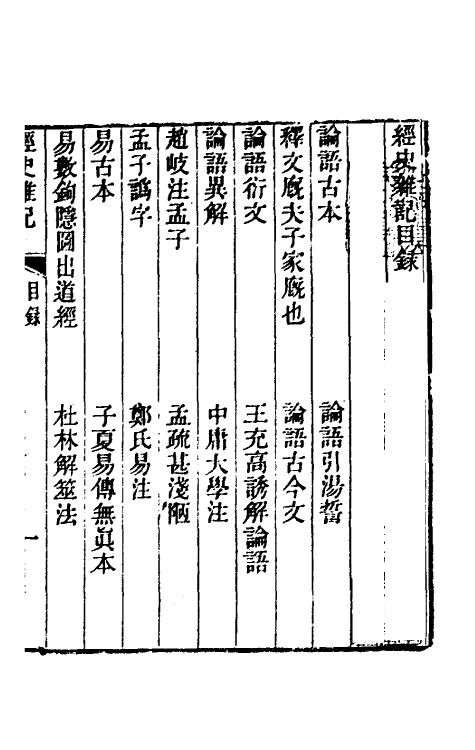 經史雜記目錄
論語古本　論語引湯誓
釋文廄夫子家廄也　論語古今文
論語衍文　王充高誘解論語
論語異解　中庸大學注
趙岐注孟子　孟疏甚淺陋
孟子譌字　鄭氏易注
易古本　子夏易傳無眞本
易數鉤隱圖出道經　杜林解筮法
經史雜記　目錄　一